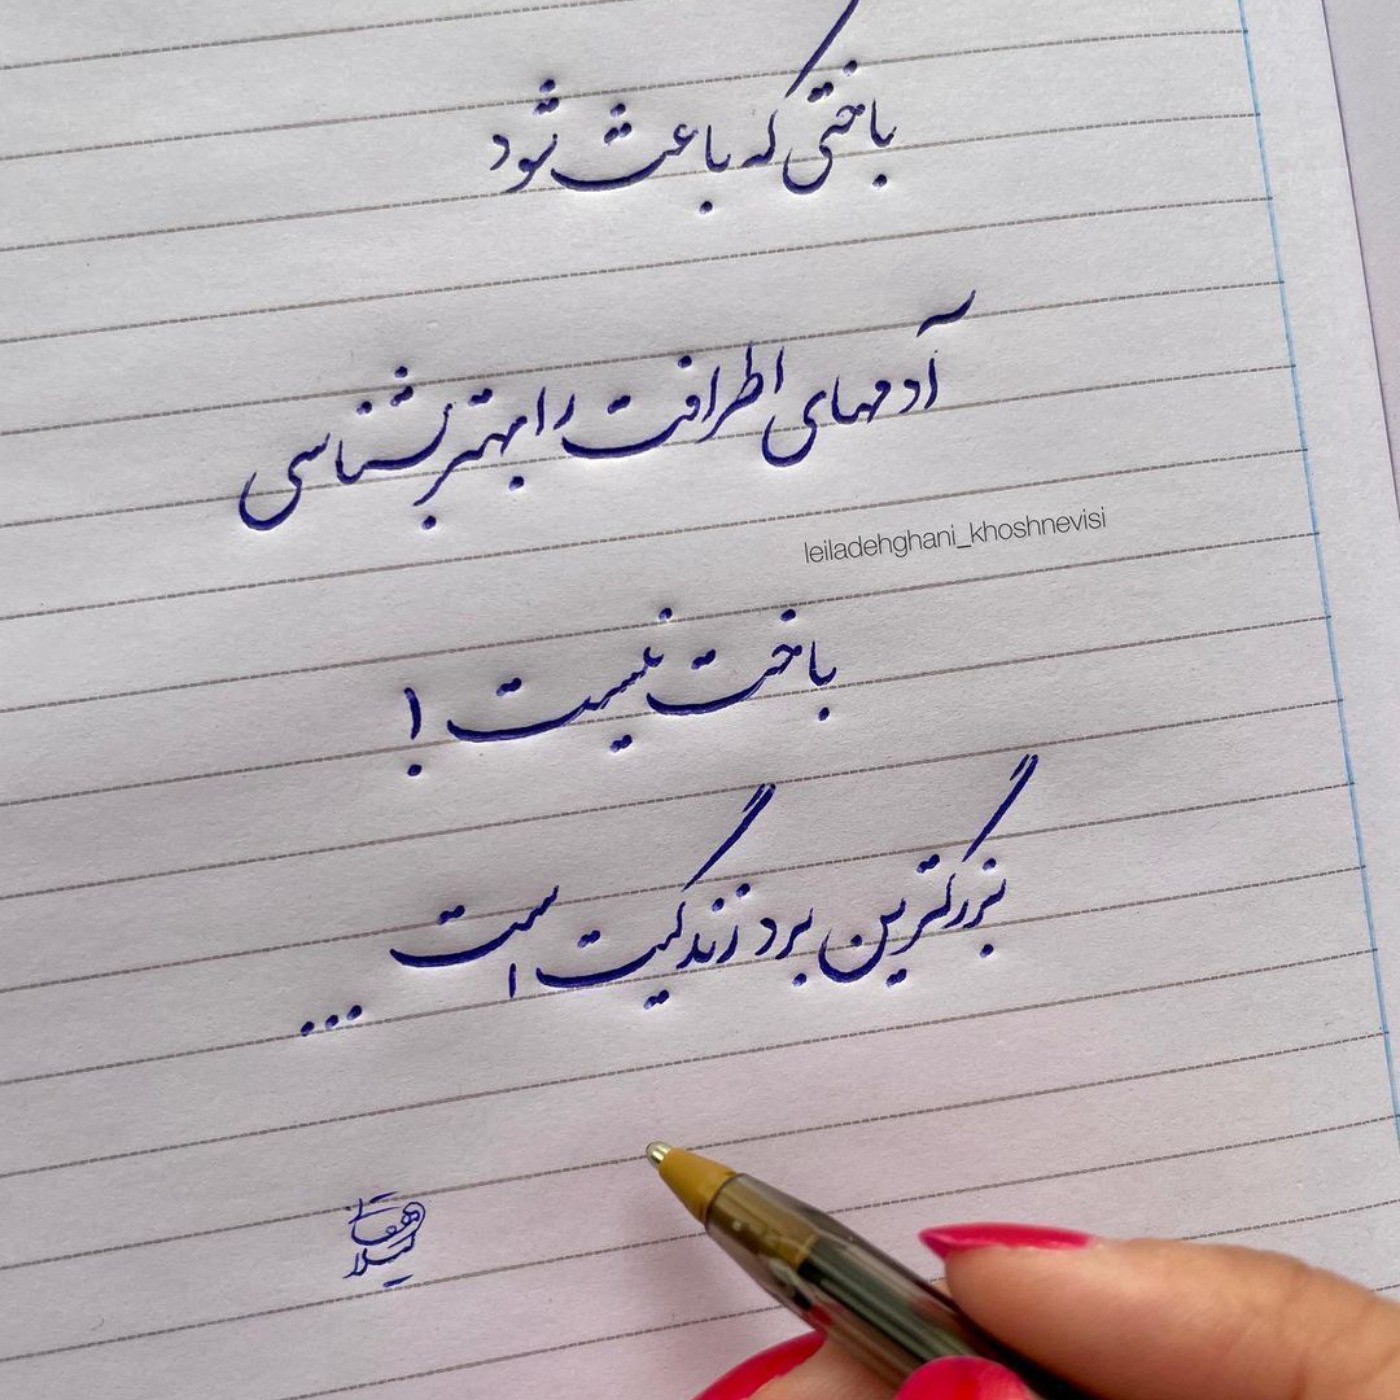 باختی که باعث شود
آدمهای اطرافت را بهتر بشناسی
leiladehghani_khoshnevisi
باخت نیست !
بزرگترین برد زندگیت است ...